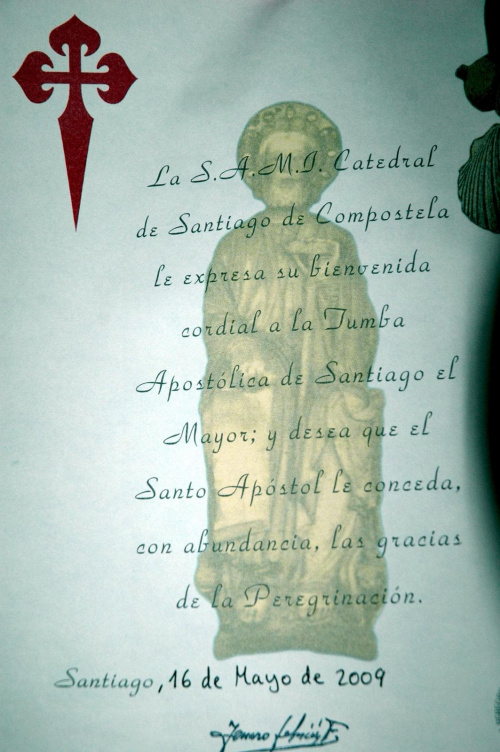 La S.A.M.I. Catedral
de Santiago de Compostela
le expresa su bienvenida
cordial a la Tumba
Apostólica de Santiago el
Mayor; y desea que el
Santo Apóstol le conceda,
con abundancia, las gracias
de la Peregrinación.
Santiago, 16 de Mayo de 2009